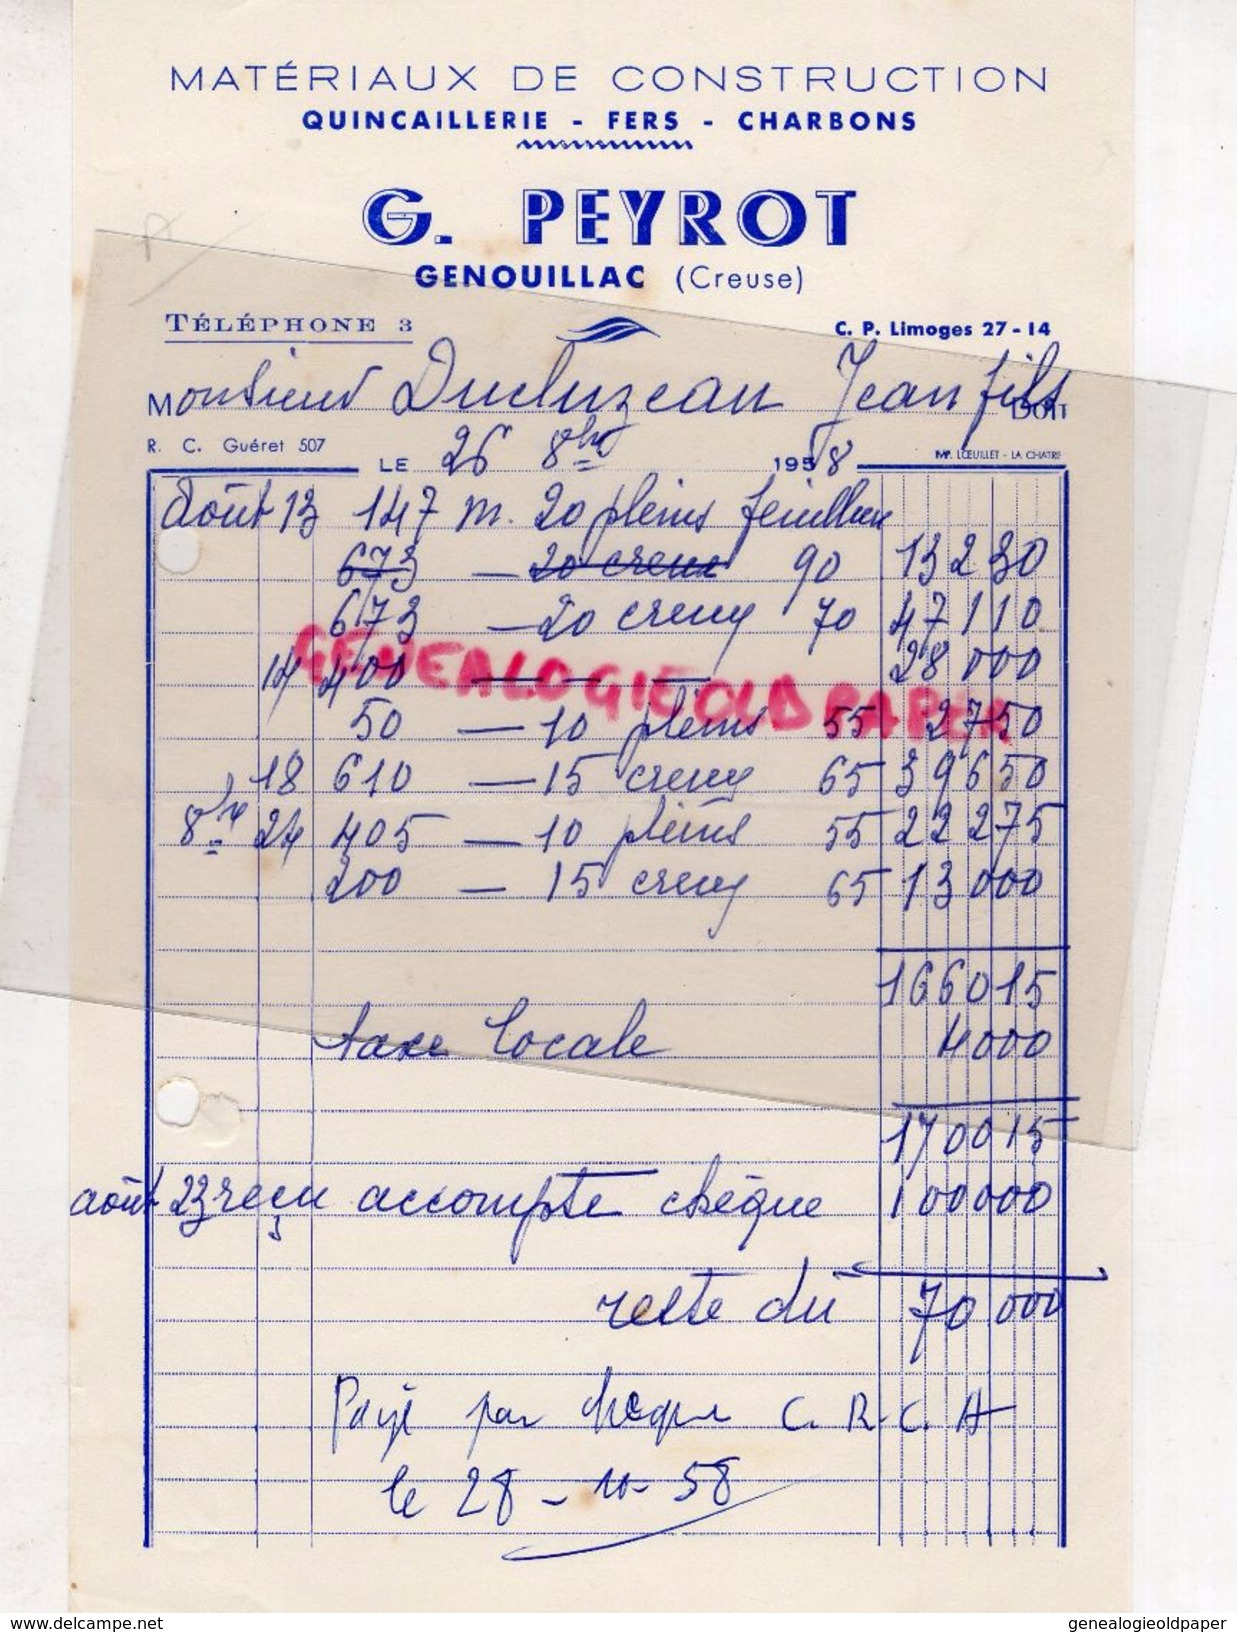 MATÉRIAUX DE CONSTRUCTION
QUINCAILLERIE - FERS - CHARBONS
G. PEYROT
GENOUILLAC (Creuse)
TÉLÉPHONE 3
C. P. Limoges 27-14
Monsieur Ducluzeau Jean fils DOIT
R. C. Guéret 507
LE 26 8bre 1958
IMP. LŒUILLET - LA CHATRE
Août 13 147 m. 20 pleins
673 — 20 creux 90 13230
673 — 20 creux 70 47110
14 400 — — — 28000
GENEALOGIE OLD PAPER
50 — 10 pleins 55 2750
18 610 — 15 creux 65 39650
8bre 24 405 — 10 pleins 55 22275
200 — 15 creux 65 13000
166015
taxe locale 4000
170015
août 23 reçu accompte chèque 100000
reste du 70000
Payé par cheque C. R. C. A
le 28-10-58
www.delcampe.net
genealogieoldpaper